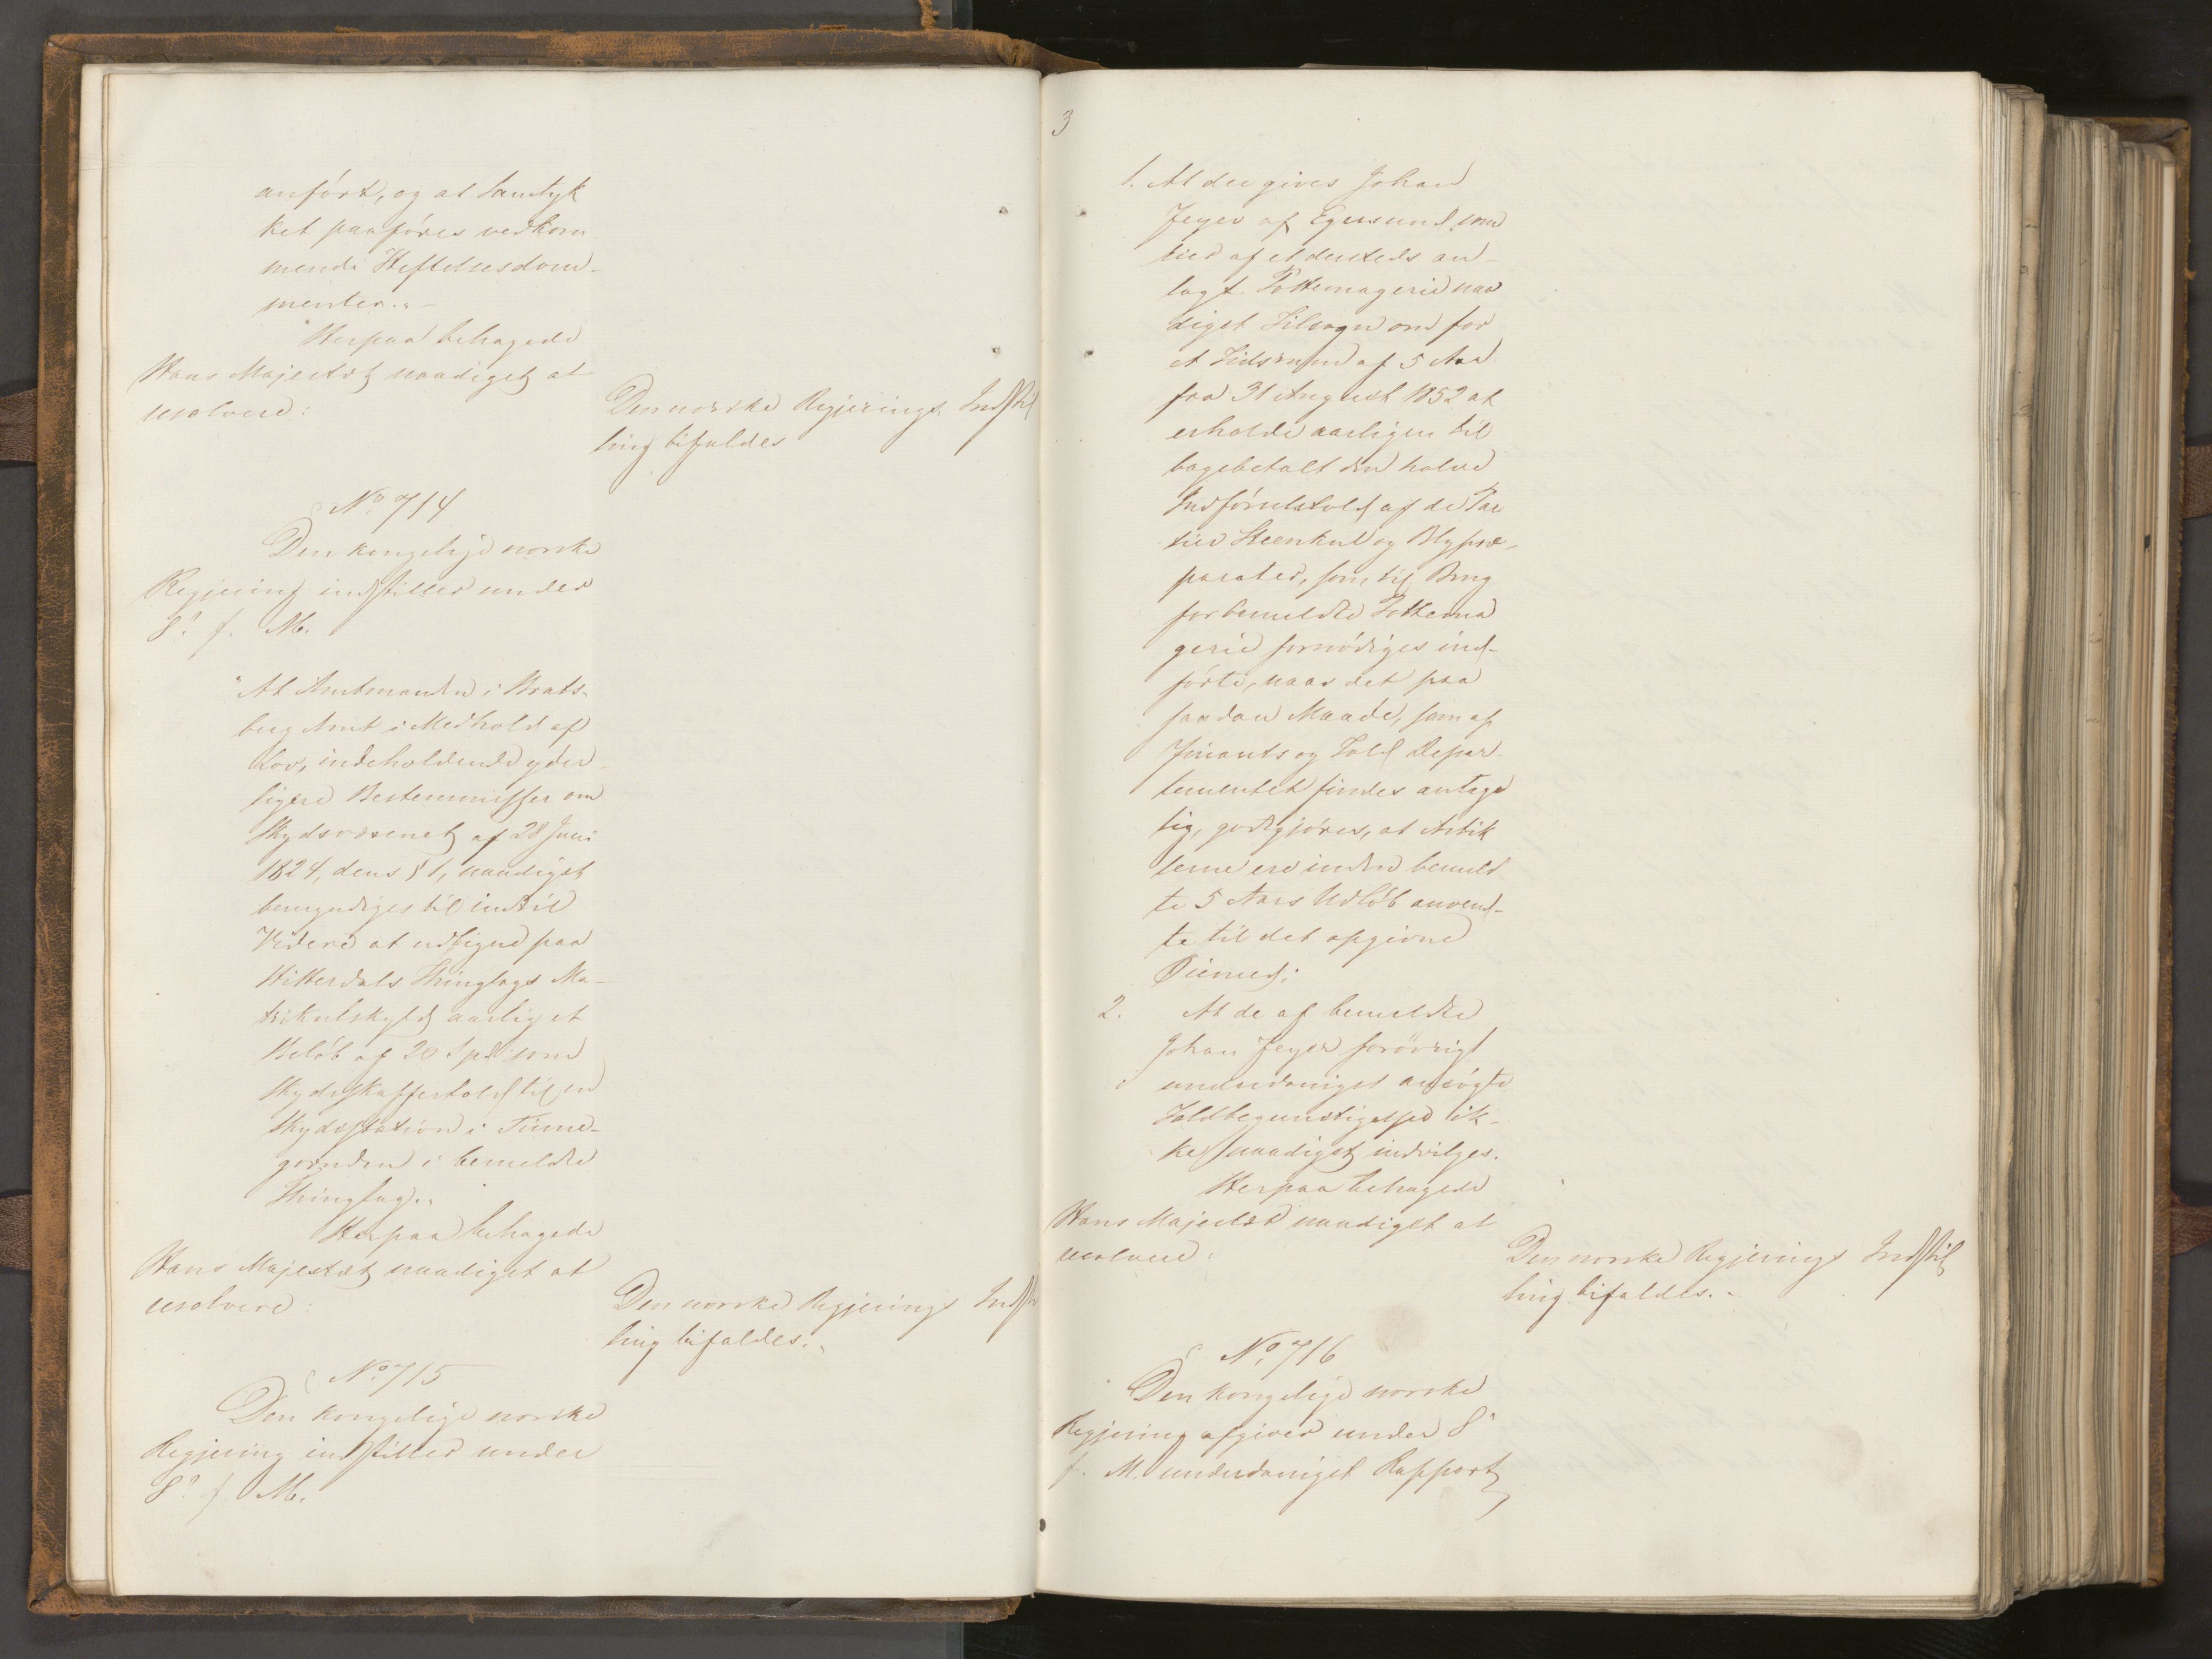 anført, og at Samtyk
ket paaføres vedkom
mende Heftelsesdocu-
menter."
Herpaa behagede
Hans Majestæt naadigst at
resolvere:
Den norske Regjerings Indstil
ling bifaldes
No 714
Den kongelige norske
Regjering indstiller under
8de f. M.
"At Amtmanden i Brats-
berg Amt i Medhold af
Lov, indeholdende yder-
ligere Bestemmelser om
Skydsvæsenet af 28 Juni
1824, dens § 1, naadigst
bemyndiges til indtil
Videre at udligne paa
Hitterdals Thinglags Ma-
trikulskyld aarlig et
Beløb af 20 Spd som
Skydsskafferhold til en
Skydsstation i Tinne-
grenden i bemeldte
Thinglag."
Herpaa behagede
Hans Majestæt naadigst at
resolvere:
Den norske Regjerings Indsti
ling bifaldes.
No 715
Den kongelige norske
Regjering indstiller under
8de f. M.
3
1. At der gives Johan
Feyer af Egersund som
Eier af et dersteds an-
lagt Pottemageri naa
digst Tilsagn om for
et Tidsrum af 5 Aar
fra 31 August 1852 at
erholde aarligen til
bagebetalt den halve
Indførselstold af de Par
tier Steenkul og Blypræ-
parater, som til Brug
for bemeldte Pottema
geri fornødiges ind-
førte, naar det paa
saadan Maade, som af
Finants og Told Depar-
tementet findes antage
lig, godtgjøres, at Artik
lerne ere inden bemeld
te 5 Aars Udløb anvend-
te til det opgivne
Øiemed;
2. At de af bemeldte
Johan Feyer forøvrigt
underdanigst ansøgte
Toldbegunstigelser ik-
ke naadigst indvilges.
Herpaa behagede
Hans Majestæt naadigst at
resolvere:
Den norske Regjerings Indstil
ling bifaldes.
No 716
Den kongelige norske
Regjering afgiver under 8de
f. M. underdanigst Rapport